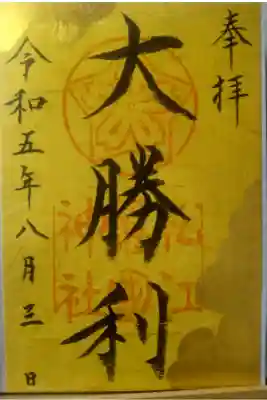 奉拝
大勝利
松江
神社
令和五年八月三日